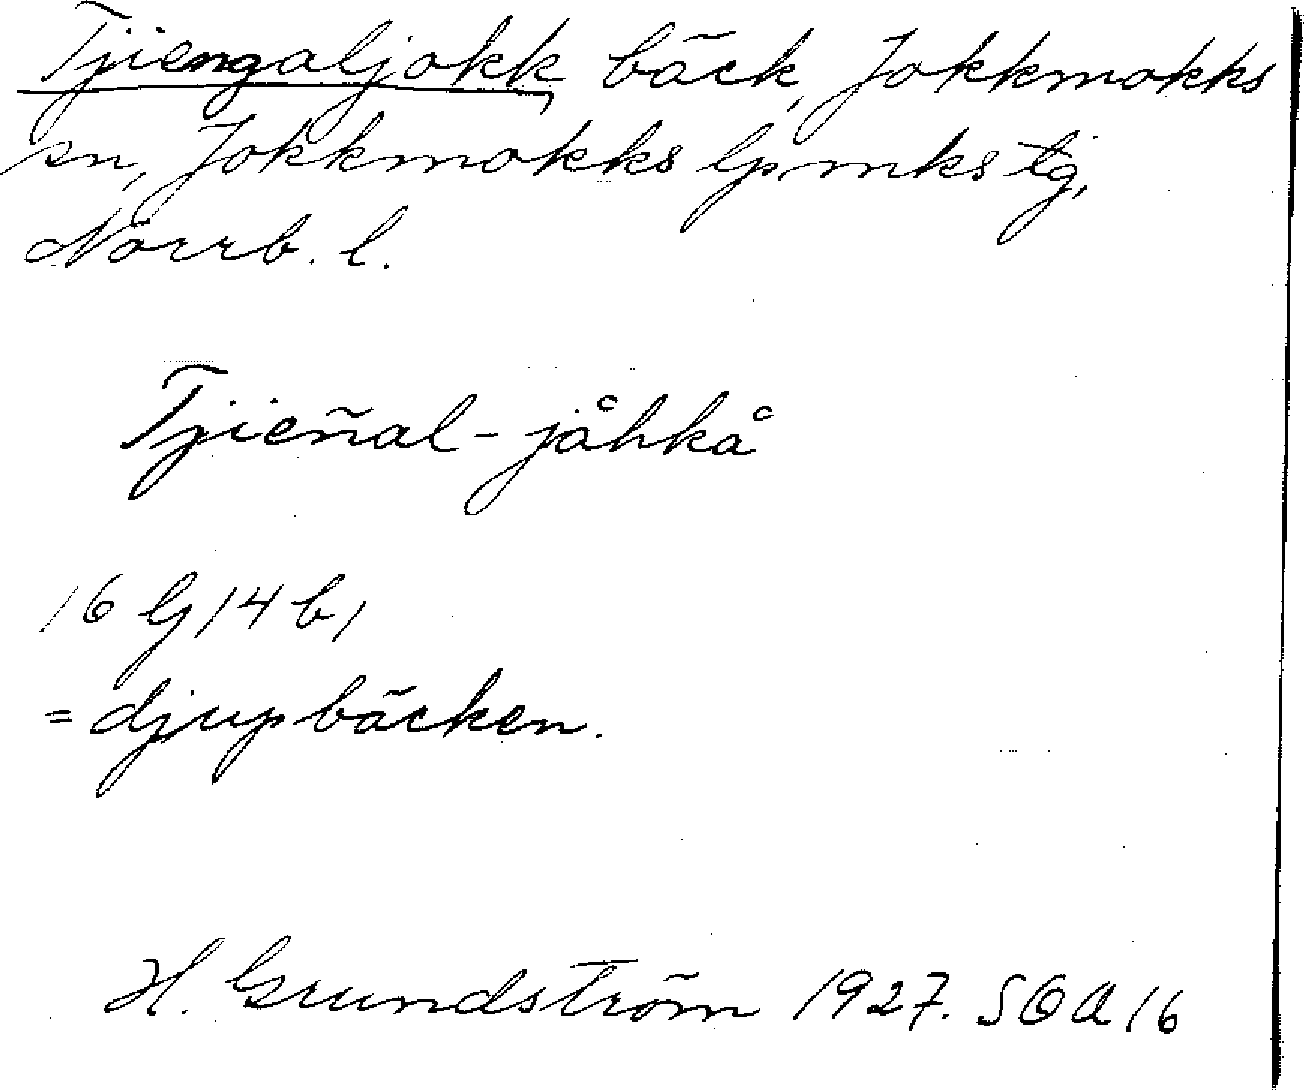 Tjiengaljokk, bäck, Jokkmokks
sn, Jokkmokks lpmks tg,
Norrb. l.
Tjieñal-jåhkå
16 G 14 b,
= djupbäcken.
H. Grundström 1927. SOA 16